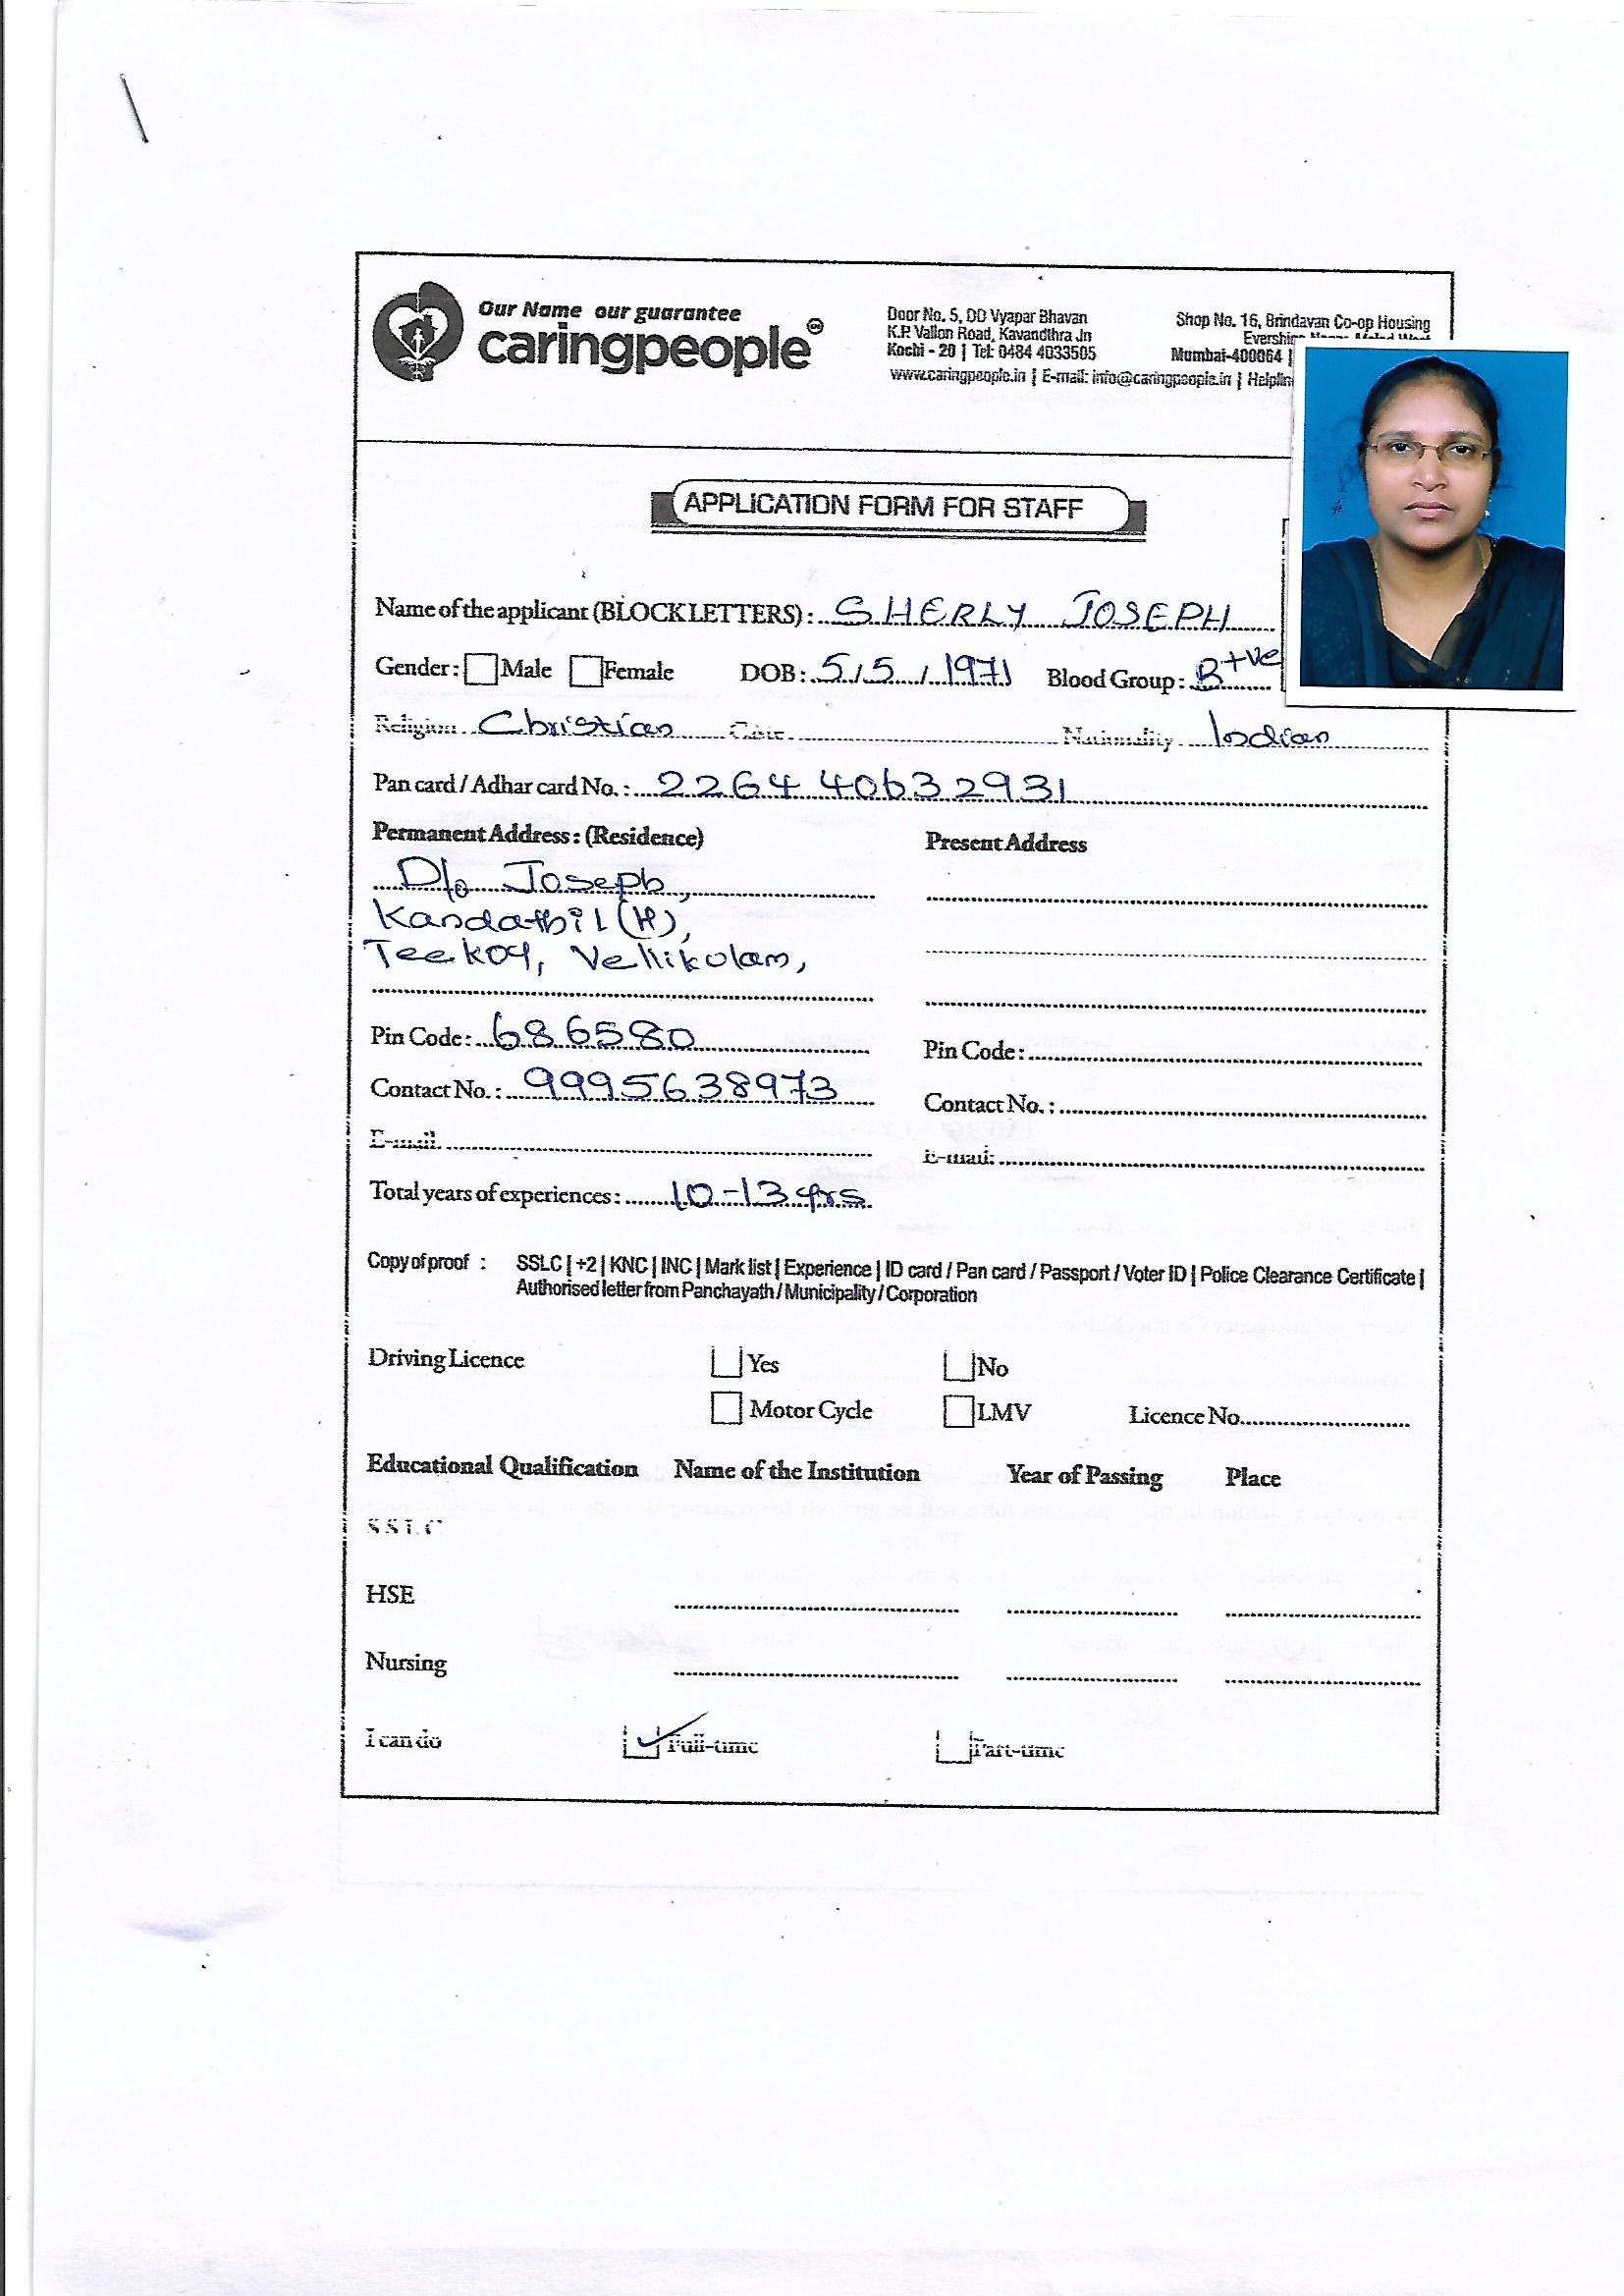 Our Name our guarantee
caringpeople
Door No. 5, DD Vyapar Bhavan
K.P. Vallon Road, Kavandthra Jn
Kochi - 20 | Tel: 0484 4033505
Shop No. 16, Brindavan Co-op Housing
Mumbai-400064 |
www.caringpeople.in | E-mail: info@caringpeople.in |
APPLICATION FORM FOR STAFF
Name of the applicant (BLOCK LETTERS) : SHERLY JOSEPH
Gender : Male Female DOB : 5/5/1971 Blood Group : B+ve
Religion Christian Caste Nationality Indian
Pan card / Adhar card No. : 2264 4063 2931
Permanent Address : (Residence) Present Address
D/o Joseph,
Kandathil (H),
Teekoy, Vellikulam,
Pin Code : 686580 Pin Code :
Contact No. : 9995638973 Contact No. :
E-mail E-mail:
Total years of experiences : 10-13 yrs
Copy of proof : SSLC | +2 | KNC | INC | Mark list | Experience | ID card / Pan card / Passport / Voter ID | Police Clearance Certificate |
Authorised letter from Panchayath / Municipality / Corporation
Driving Licence Yes No
Motor Cycle LMV Licence No.
Educational Qualification Name of the Institution Year of Passing Place
SSLC
HSE
Nursing
I can do Full-time Part-time